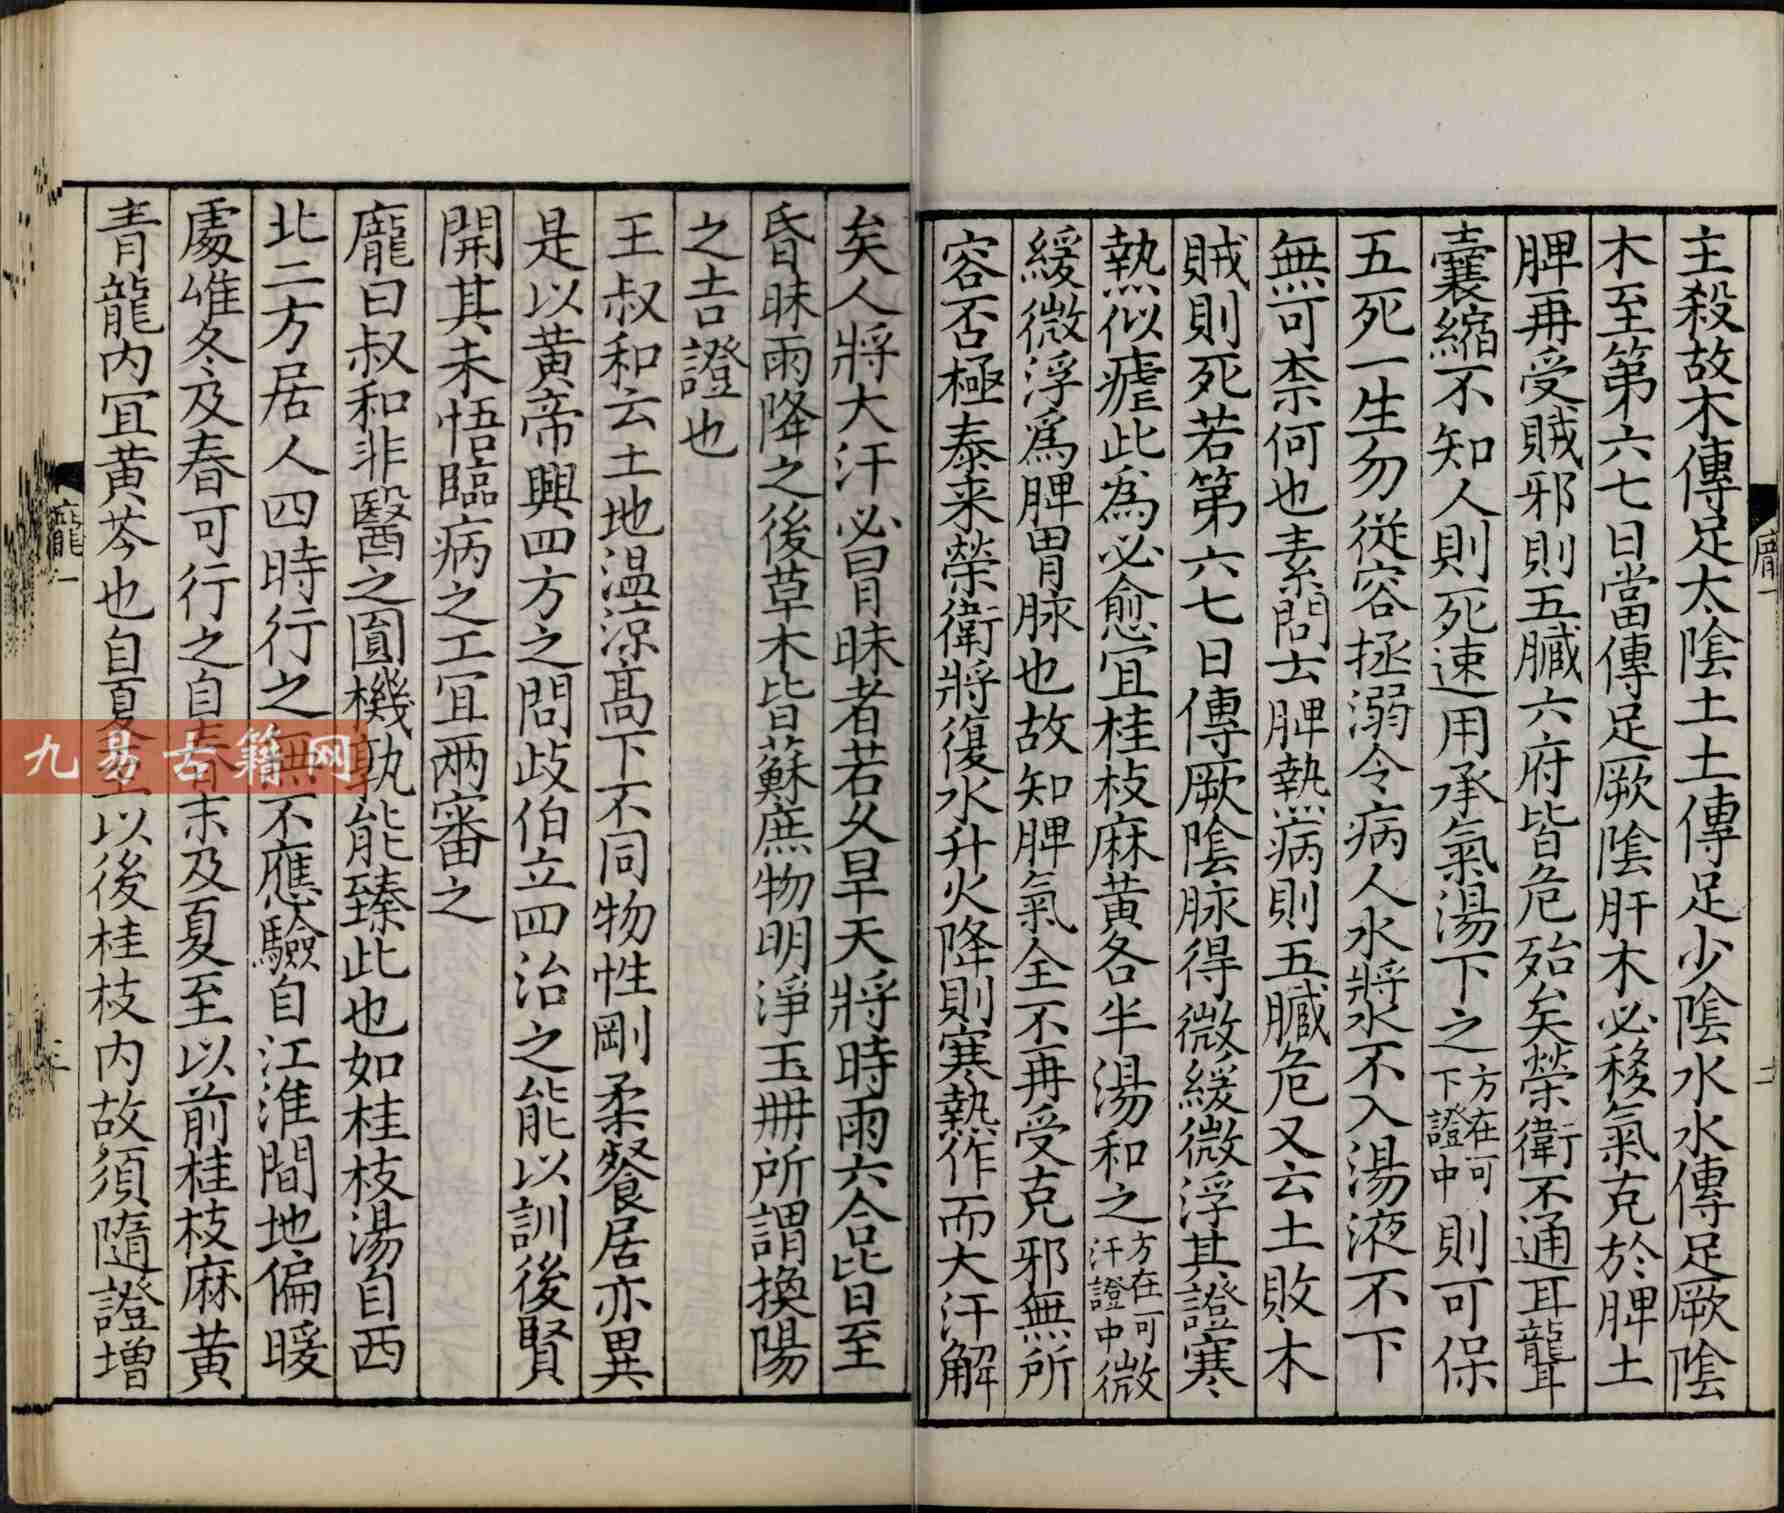 主殺故木傳足太陰土土傳足少陰水水傳足厥陰
木至第六七日當傳足厥陰肝木必移氣克於脾土
脾再受賊邪則五臟六府皆危殆矣榮衛不通耳聾
囊縮不知人則死速用承氣湯下之方在可下證中則可保
五死一生勿從容拯溺令病人水將水不入湯液不下
無可柰何也素問云脾熱病則五臟危又云土敗木
賊則死若第六七日傳厥陰脉得微緩微浮其證寒
熱似瘧此為必愈宜桂枝麻黄各半湯和之方在可汗證中微
緩微浮為脾胃脉也故知脾氣全不再受克邪無所
容否極泰来榮衛將復水升火降則寒熱作而大汗解
矣人將大汗必冒昧者若久旱天將時雨六合皆至
昏昧雨降之後草木皆蘇庶物明淨玉冊所謂換陽
之吉證也
王叔和云土地温凉高下不同物性剛柔餐居亦異
是以黄帝興四方之問歧伯立四治之能以訓後賢
開其未悟臨病之工宜兩審之
龐曰叔和非醫之圓機孰能臻此也如桂枝湯自西
北二方居人四時行之無不應驗自江淮間地偏暖
處唯冬及春可行之自春末及夏至以前桂枝麻黄
青龍内宜黄芩也自夏至以後桂枝内故須隨證增
龐一
三
龐一
二
九易古籍网